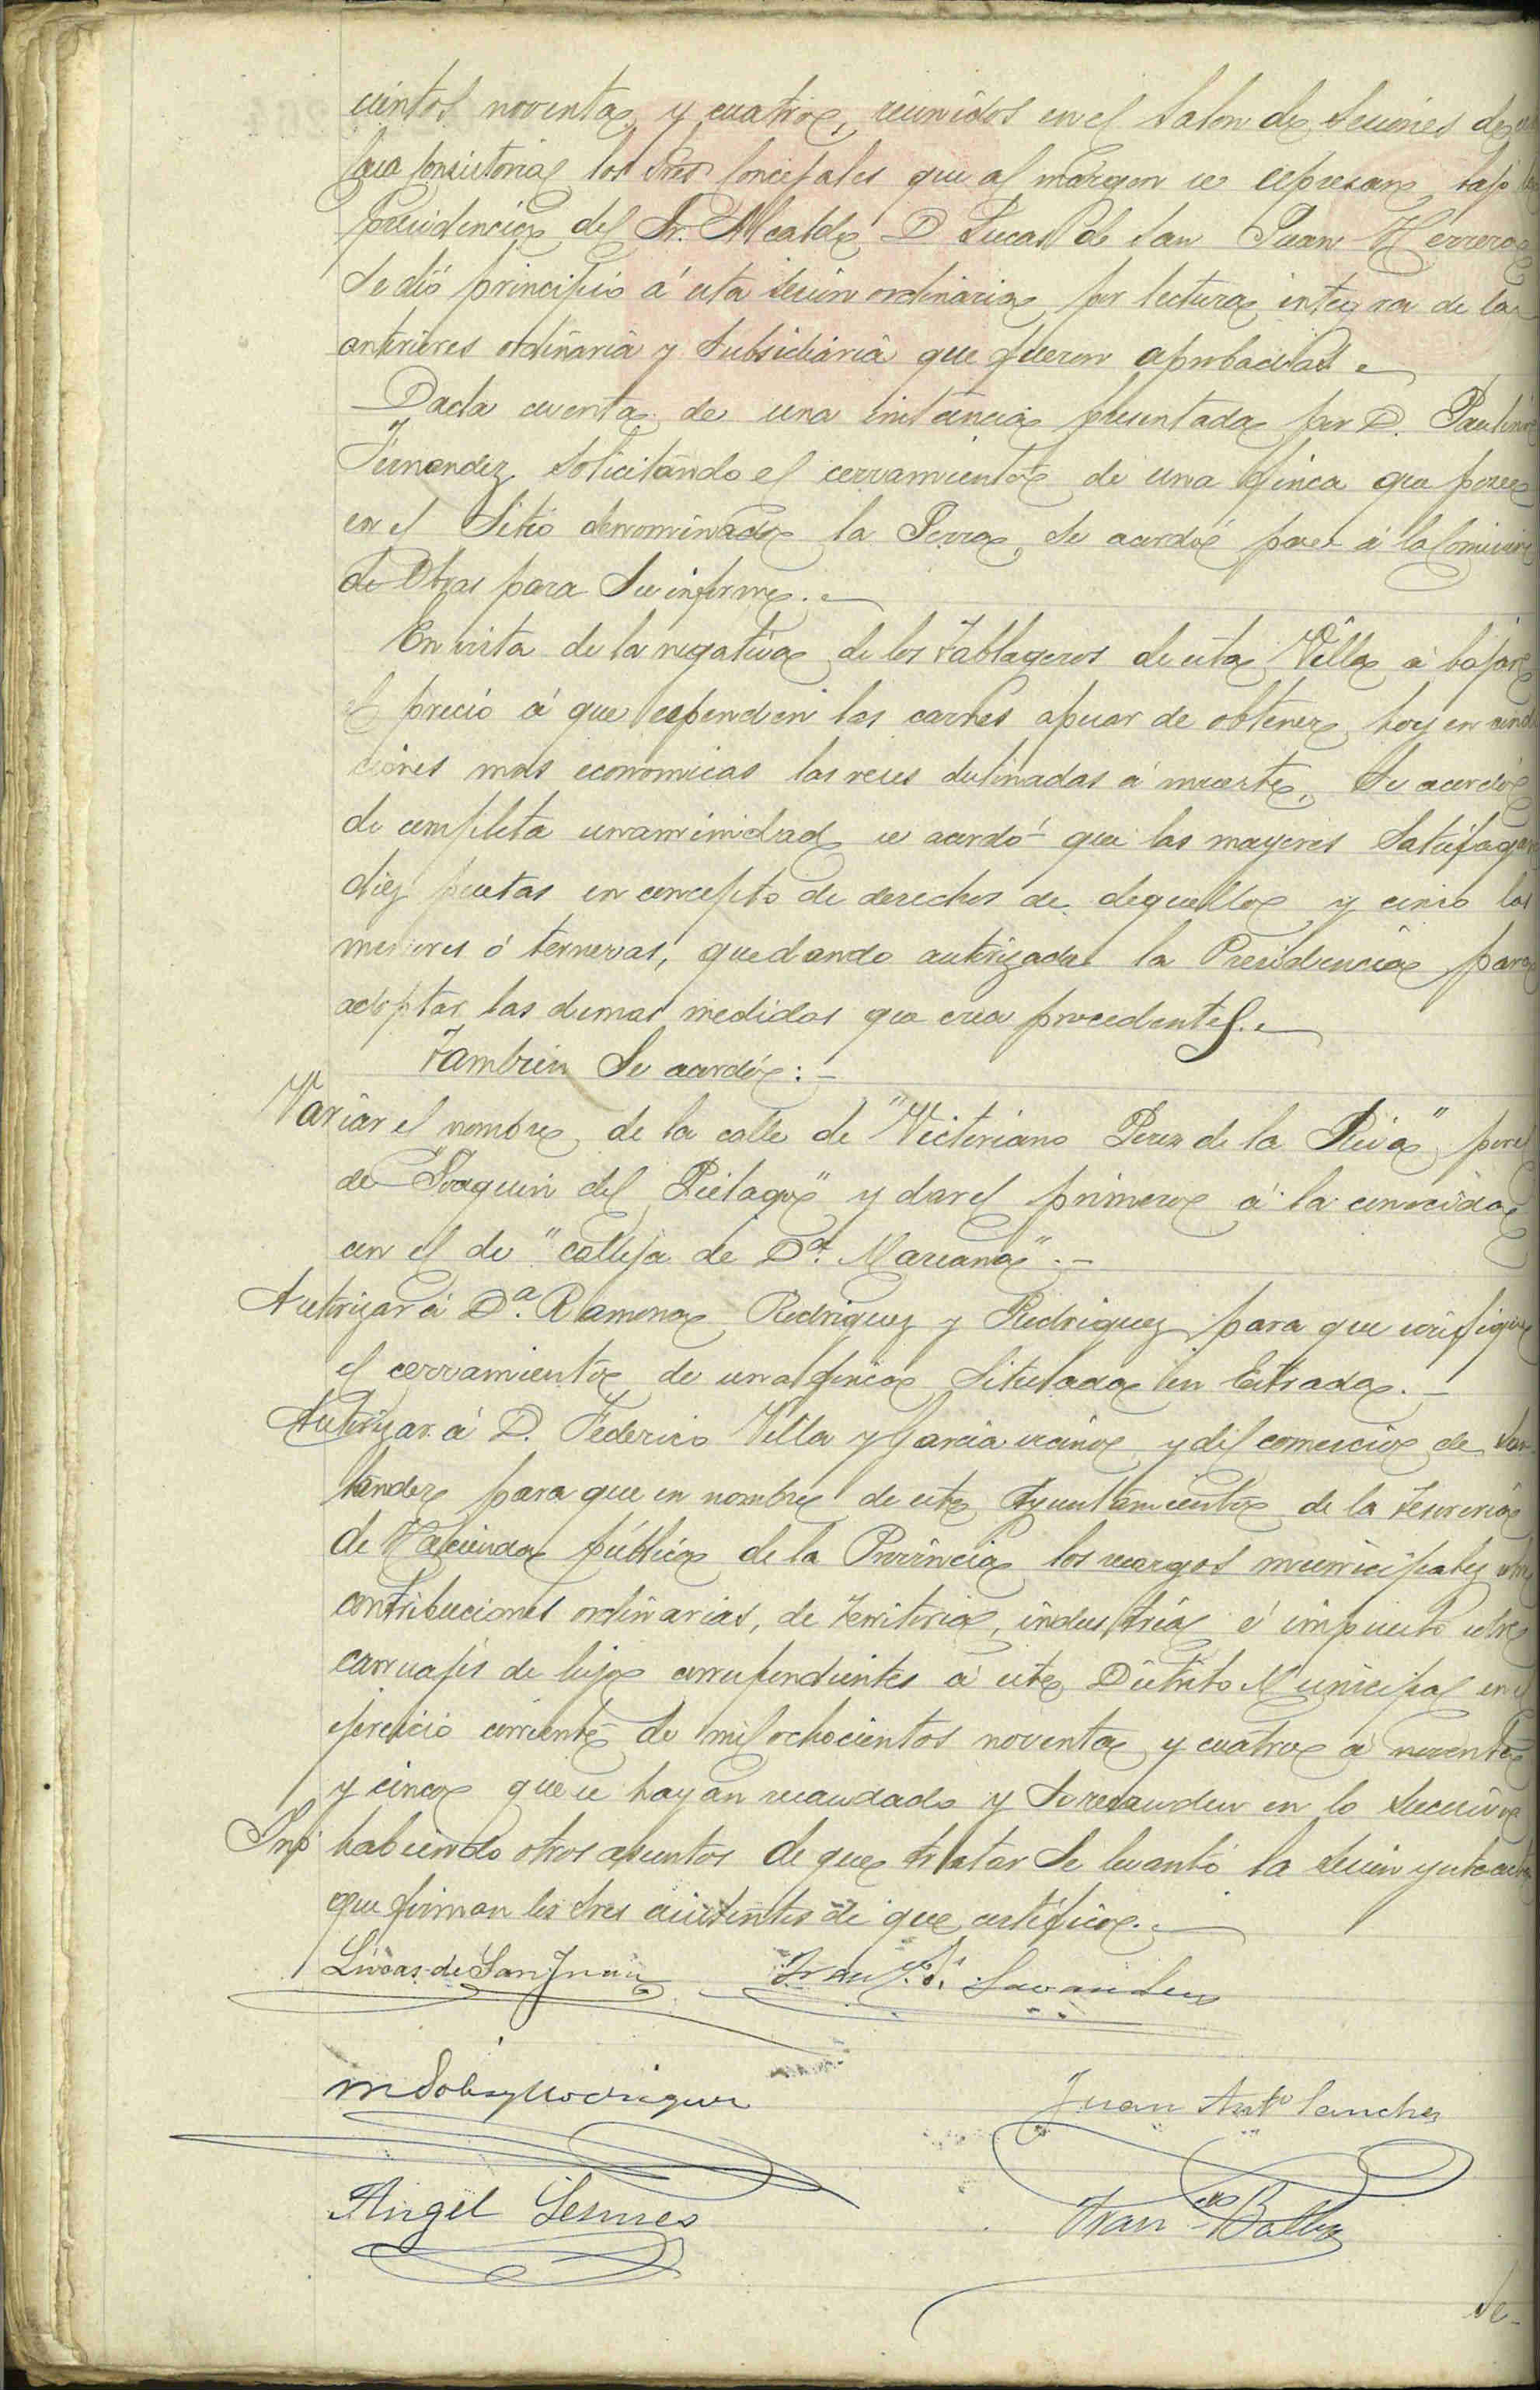 cientos noventa y cuatro, reunidos en el Salon de Sesiones de
Casa Consistorial los Sres Concejales que al márgen se espresan bajo la
presidencia del Sr. Alcalde D Lucas de San Juan Herrero
Se dió principio á esta sesion ordinaria por lectura integra de las
anteriores ordinaria y subsidiaria que fueron aprobadas.
Dada cuenta de una instancia presentada por D. Paulino
Fernandez solicitando el cerramiento de una finca que posee
en el Sitio denominado la Perra, se acordó pase á la Comision
de Obras para su informe.
En vista de la negativa de los Tablageros de esta Villa á bajar
el precio á que espenden las carnes apesar de obtener hoy en condi
ciones mas economicas las reses destinadas á muerte, Se acordó
de completa unanimidad se acordó que las mayores satisfagan
diez pesetas en concepto de derechos de deguello y cinco las
menores ó terneras, quedando autorizada la Presidencia para
adoptar las demas medidas que crea procedentes.
Tambien Se acordó:
Variar el nombre de la calle de "Victoriano Perez de la Riva" por el
de "Joaquin del Piélago" y dar el primero á la conocida
con el de "calleja de Dª. Mariana".
Autorizar á Dª. Ramona Rodriguez y Rodriguez para que verifique
el cerramiento de una finca situlada en Estrada.
Autorizar á D. Federico Villa y Garcia vecino y del comercio de San
tander para que en nombre de este Ayuntamiento de la Tesoreria
de Hacienda pública de la Provincia los recargos municipales sobre
contribuciones ordinarias, de territorio, industria é impuesto sobre
carruajes de lujo correspondientes á este Distrito Municipal en el
ejercicio corriente de mil ochocientos noventa y cuatro á noventa
y cinco que se hayan recaudado y se recauden en lo sucesivo
Y no habiendo otros asuntos de que tratar Se levantó la sesion y esta acta
que firman los Sres asistentes de que certifico.
Lucas de San Juan
M Solis y Rodriguez
Juan Antº Sanchez
Angel Lesmes
Fran.co Balbas
Se-